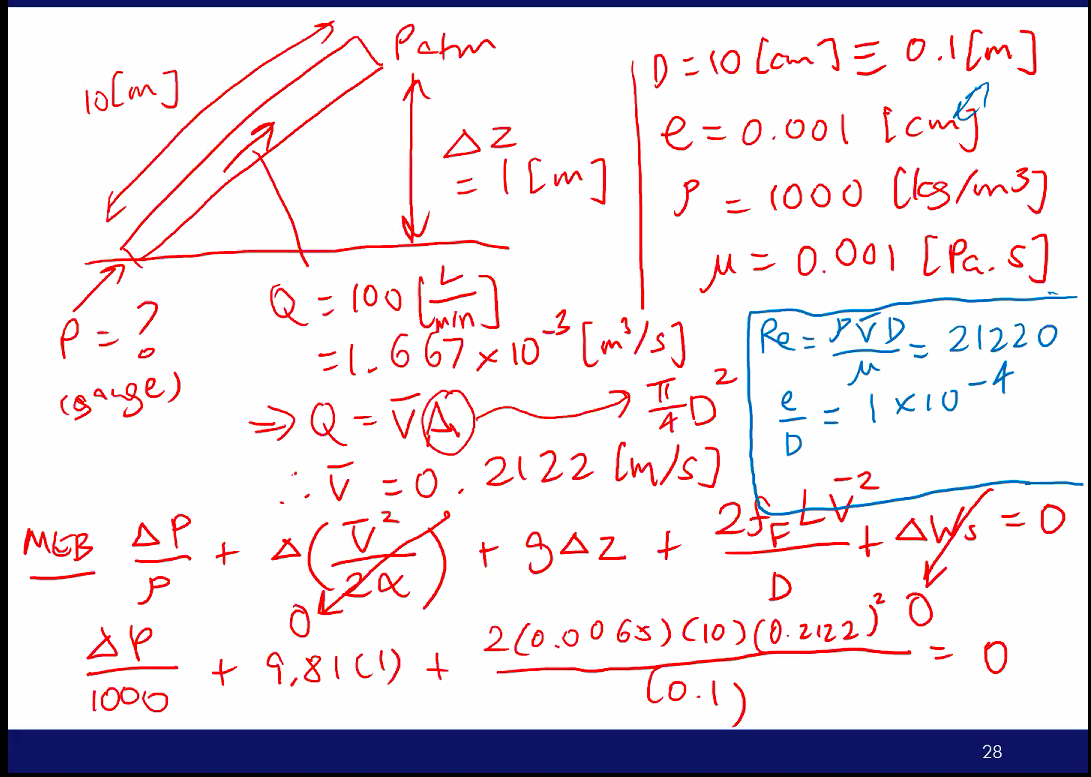 10[m]
Patm
ΔZ
= 1 [m]
P = ?
(gauge)
Q = 100 [L/min]
= 1.667 × 10^-3 [m^3/s]
⇒ Q = V̄A → π/4 D^2
∴ V̄ = 0.2122 [m/s]
D = 10 [cm] ≡ 0.1 [m]
e = 0.001 [cm]
ρ = 1000 [kg/m3]
μ = 0.001 [Pa.s]
Re = ρV̄D/μ = 21220
e/D = 1 × 10^-4
MEB ΔP/ρ + Δ(V̄^2/2α) + gΔz + 2f_F L V̄^2/D + ΔWs = 0
0
0
ΔP/1000 + 9,81(1) + 2(0.0065)(10)(0.2122)^2/(0.1) = 0
28